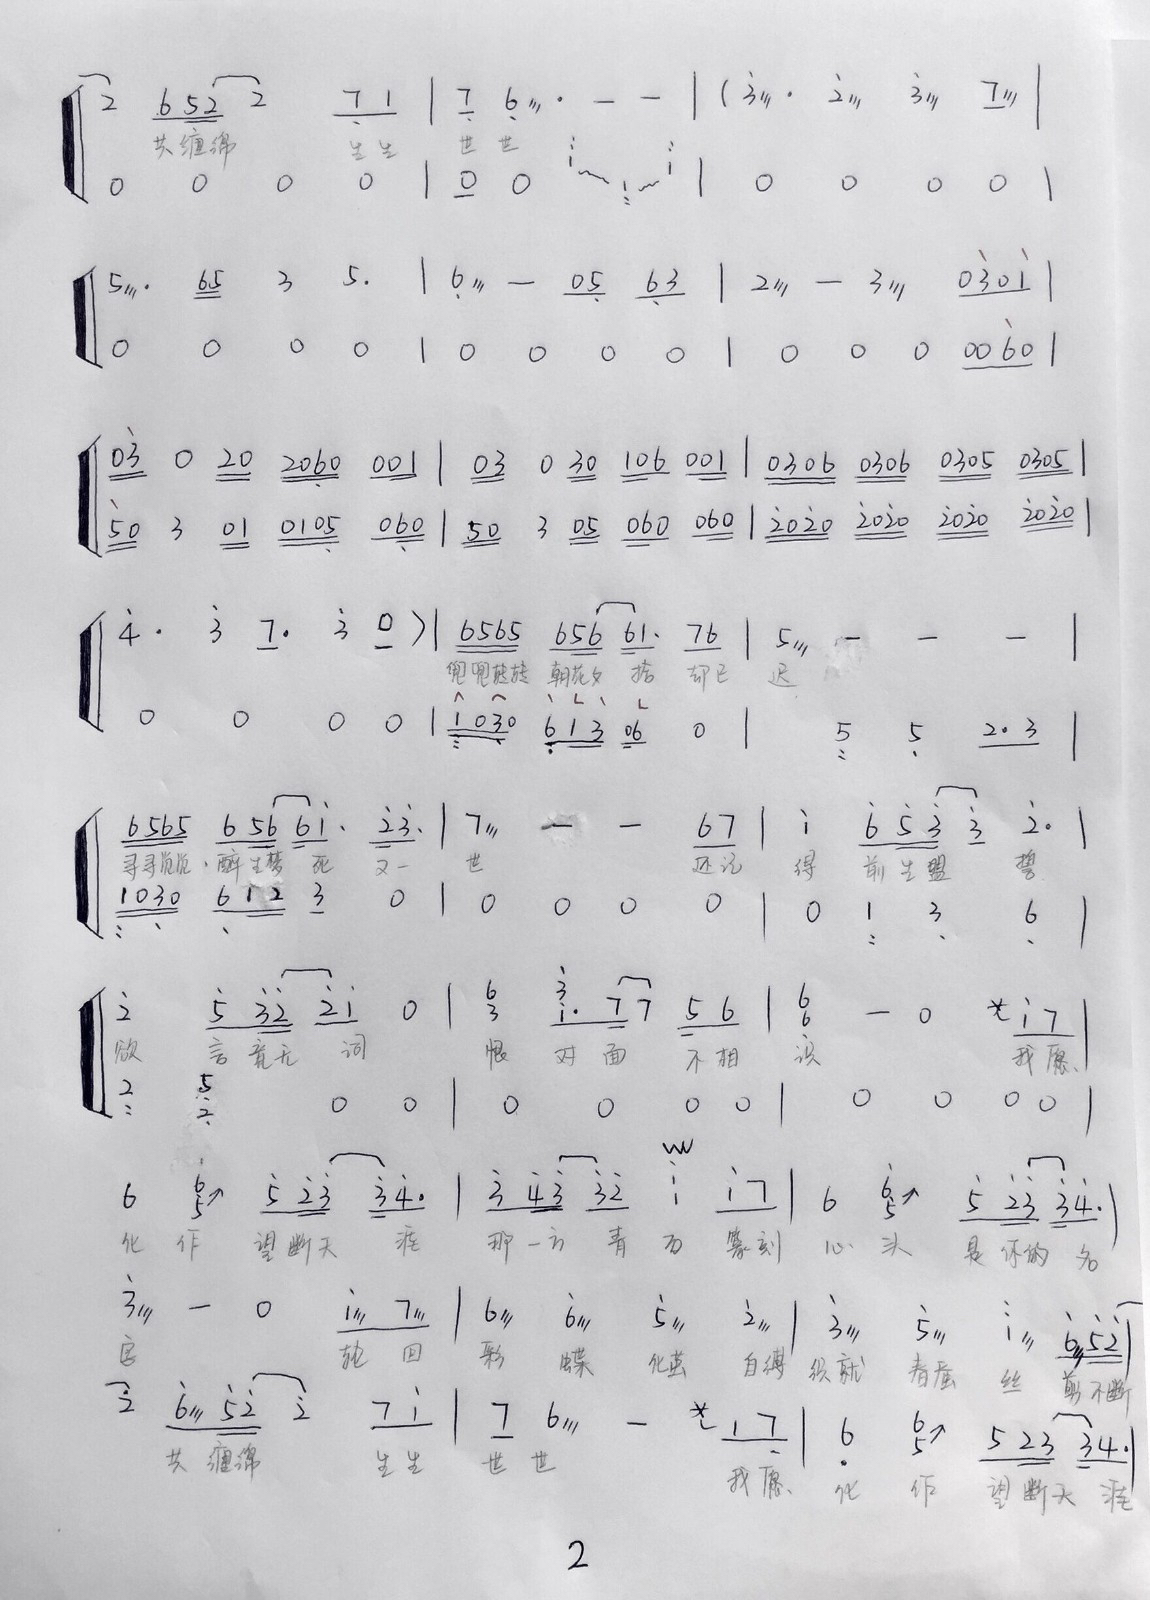 2 652 2 71 | 7 6 · — — | ( 3 · 2 3 7 |
共缠绵 生生 世世
0 0 0 0 | 0 0 i i i | 0 0 0 0 |
5 · 65 3 5· | 6 — 05 63 | 2 — 3 0301 |
0 0 0 0 | 0 0 0 0 | 0 0 0 0060 |
03 0 20 2060 001 | 03 0 30 106 001 | 0306 0306 0305 0305 |
50 3 01 0105 060 | 50 3 05 060 060 | 2020 2020 2020 2020 |
4 · 3 7· 3 0 ) | 6565 656 61· 76 | 5 — — — |
兜兜转转 朝花夕 拾 却已 迟
0 0 0 0 | 1030 613 06 0 | 5 5 2·3 |
6565 656 61· 23· | 7 — — 67 | i 6 53 3 2· |
寻寻觅觅 醉生梦 死 又一 世 还记 得 前生盟 誓
1030 612 3 0 | 0 0 0 0 | 0 1 3 6 |
2 5 32 21 0 | 6 3 3 1· 7 7 5 6 | 6 6 — 0 i7 |
欲 言竟无 词 恨 对 面 不相 识 我愿、
2 5 2 0 0 | 0 0 0 0 | 0 0 0 0 |
6 6 5 5 23 34· | 3 43 32 i i7 | 6 6 5 5 23 34· |
化 作 望断天 涯 那一方 青 石 篆刻 心 头 是你的 名
3 — 0 i 7 | 6 6 5 2 | 3 5 i 652 |
字 轮 回 彩 蝶 化茧 自缚 织就 春蚕 丝 剪不断
2 6 52 2 7i | 7 6 — 17 | 6 6 5 5 23 34· |
共 缠绵 生生 世世 我愿、 化 作 望断天 涯
2